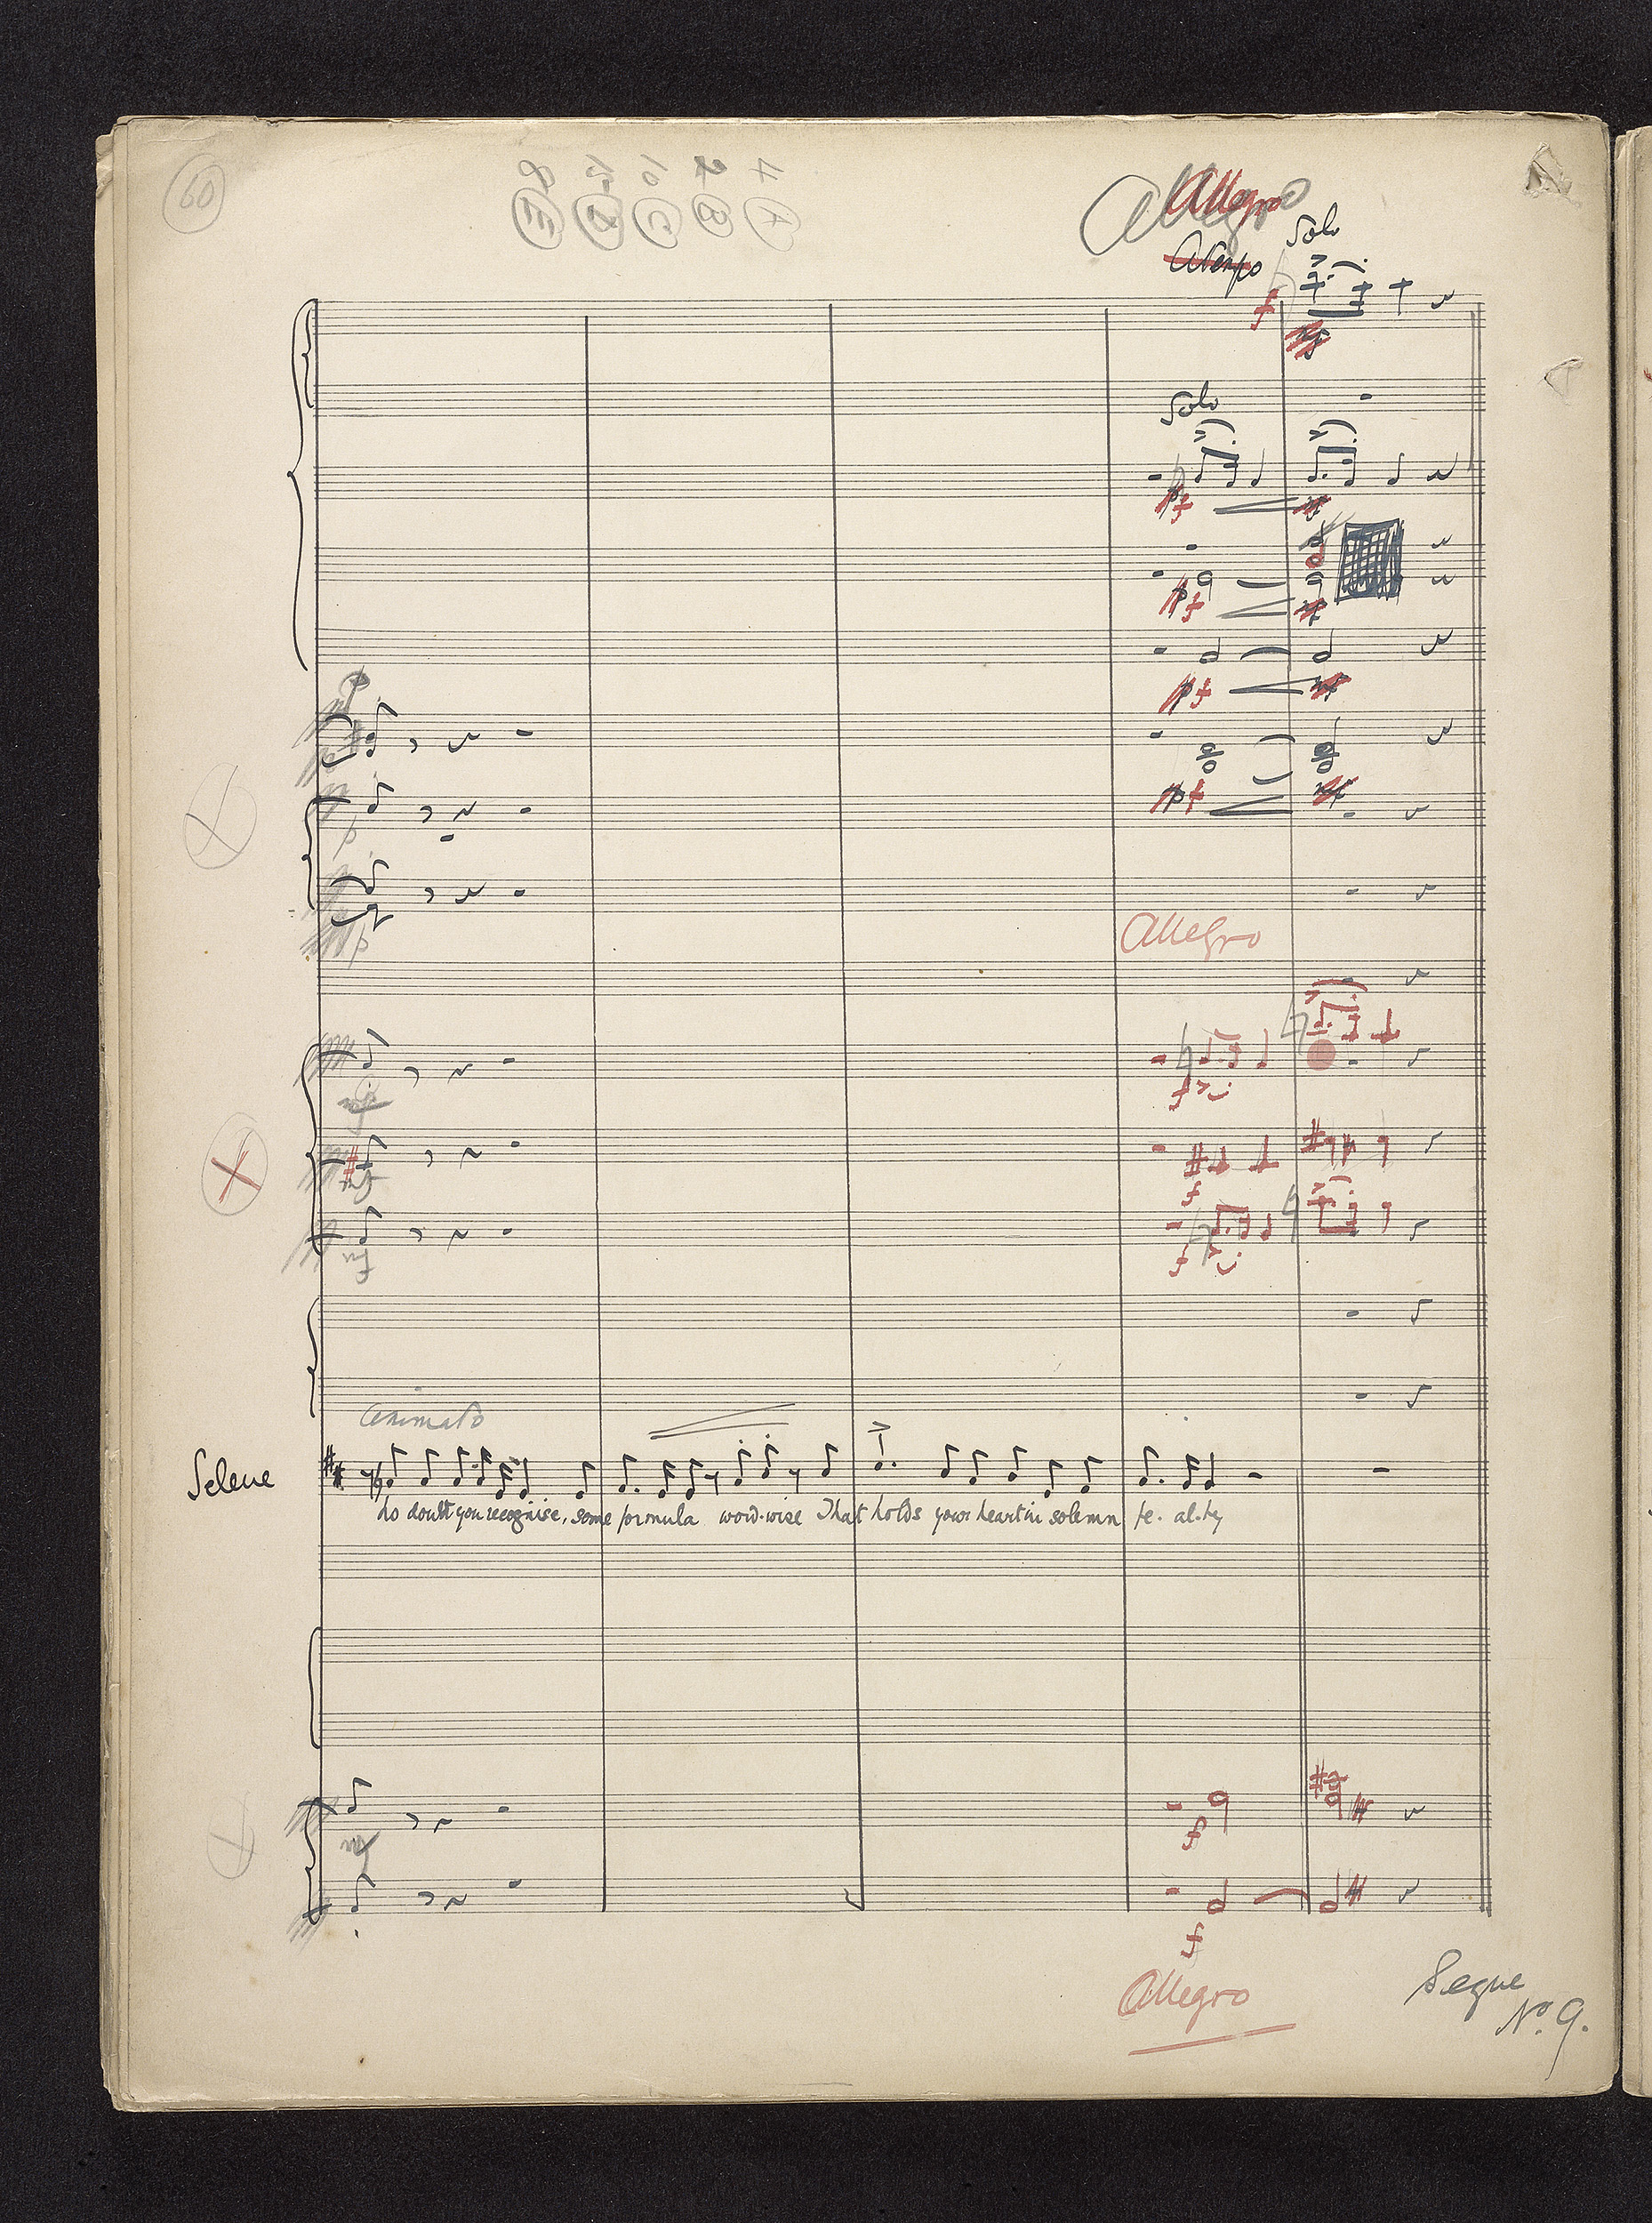 60
Allegro
Allegro
A Tempo
Solo
f
Solo
f
f
f
f
p
p
p
Allegro
f
f
f
animato
Selene
No doubt you recognise, some formula word-wise That holds your heart in solemn fe-al-ty
f
f
Allegro
Segue
No. 9.